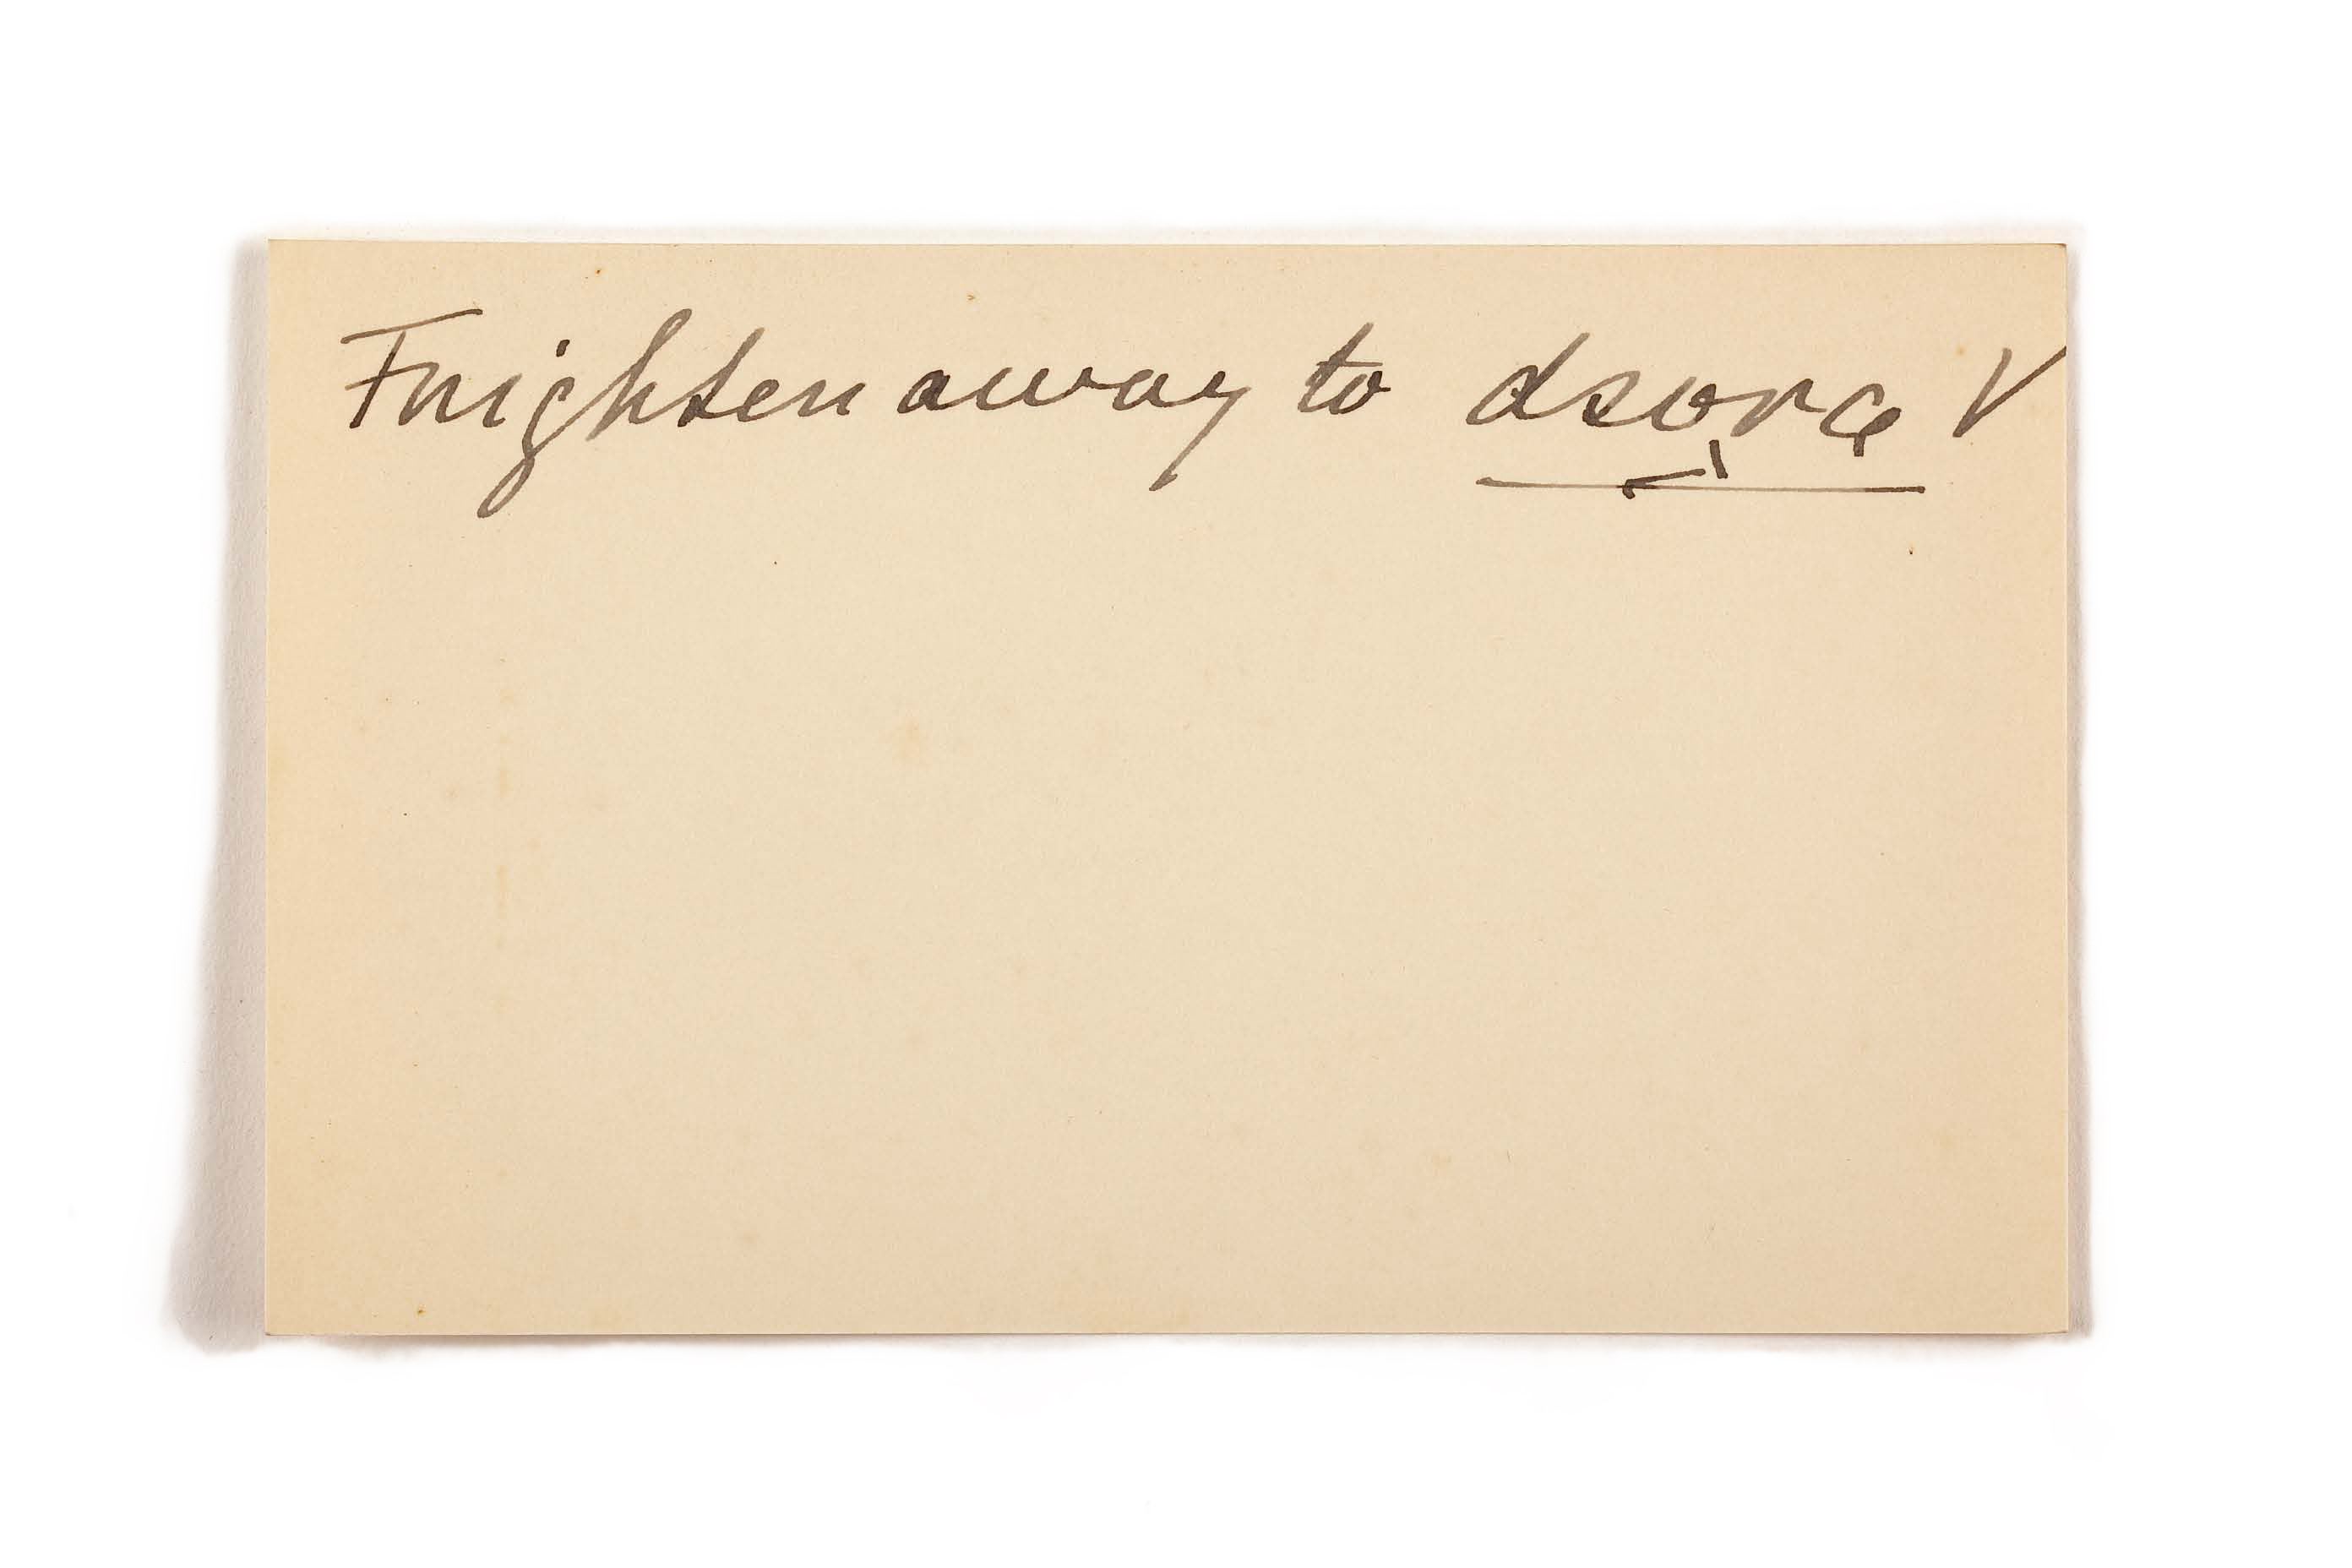 Frighten away to dsǫ̀rą V